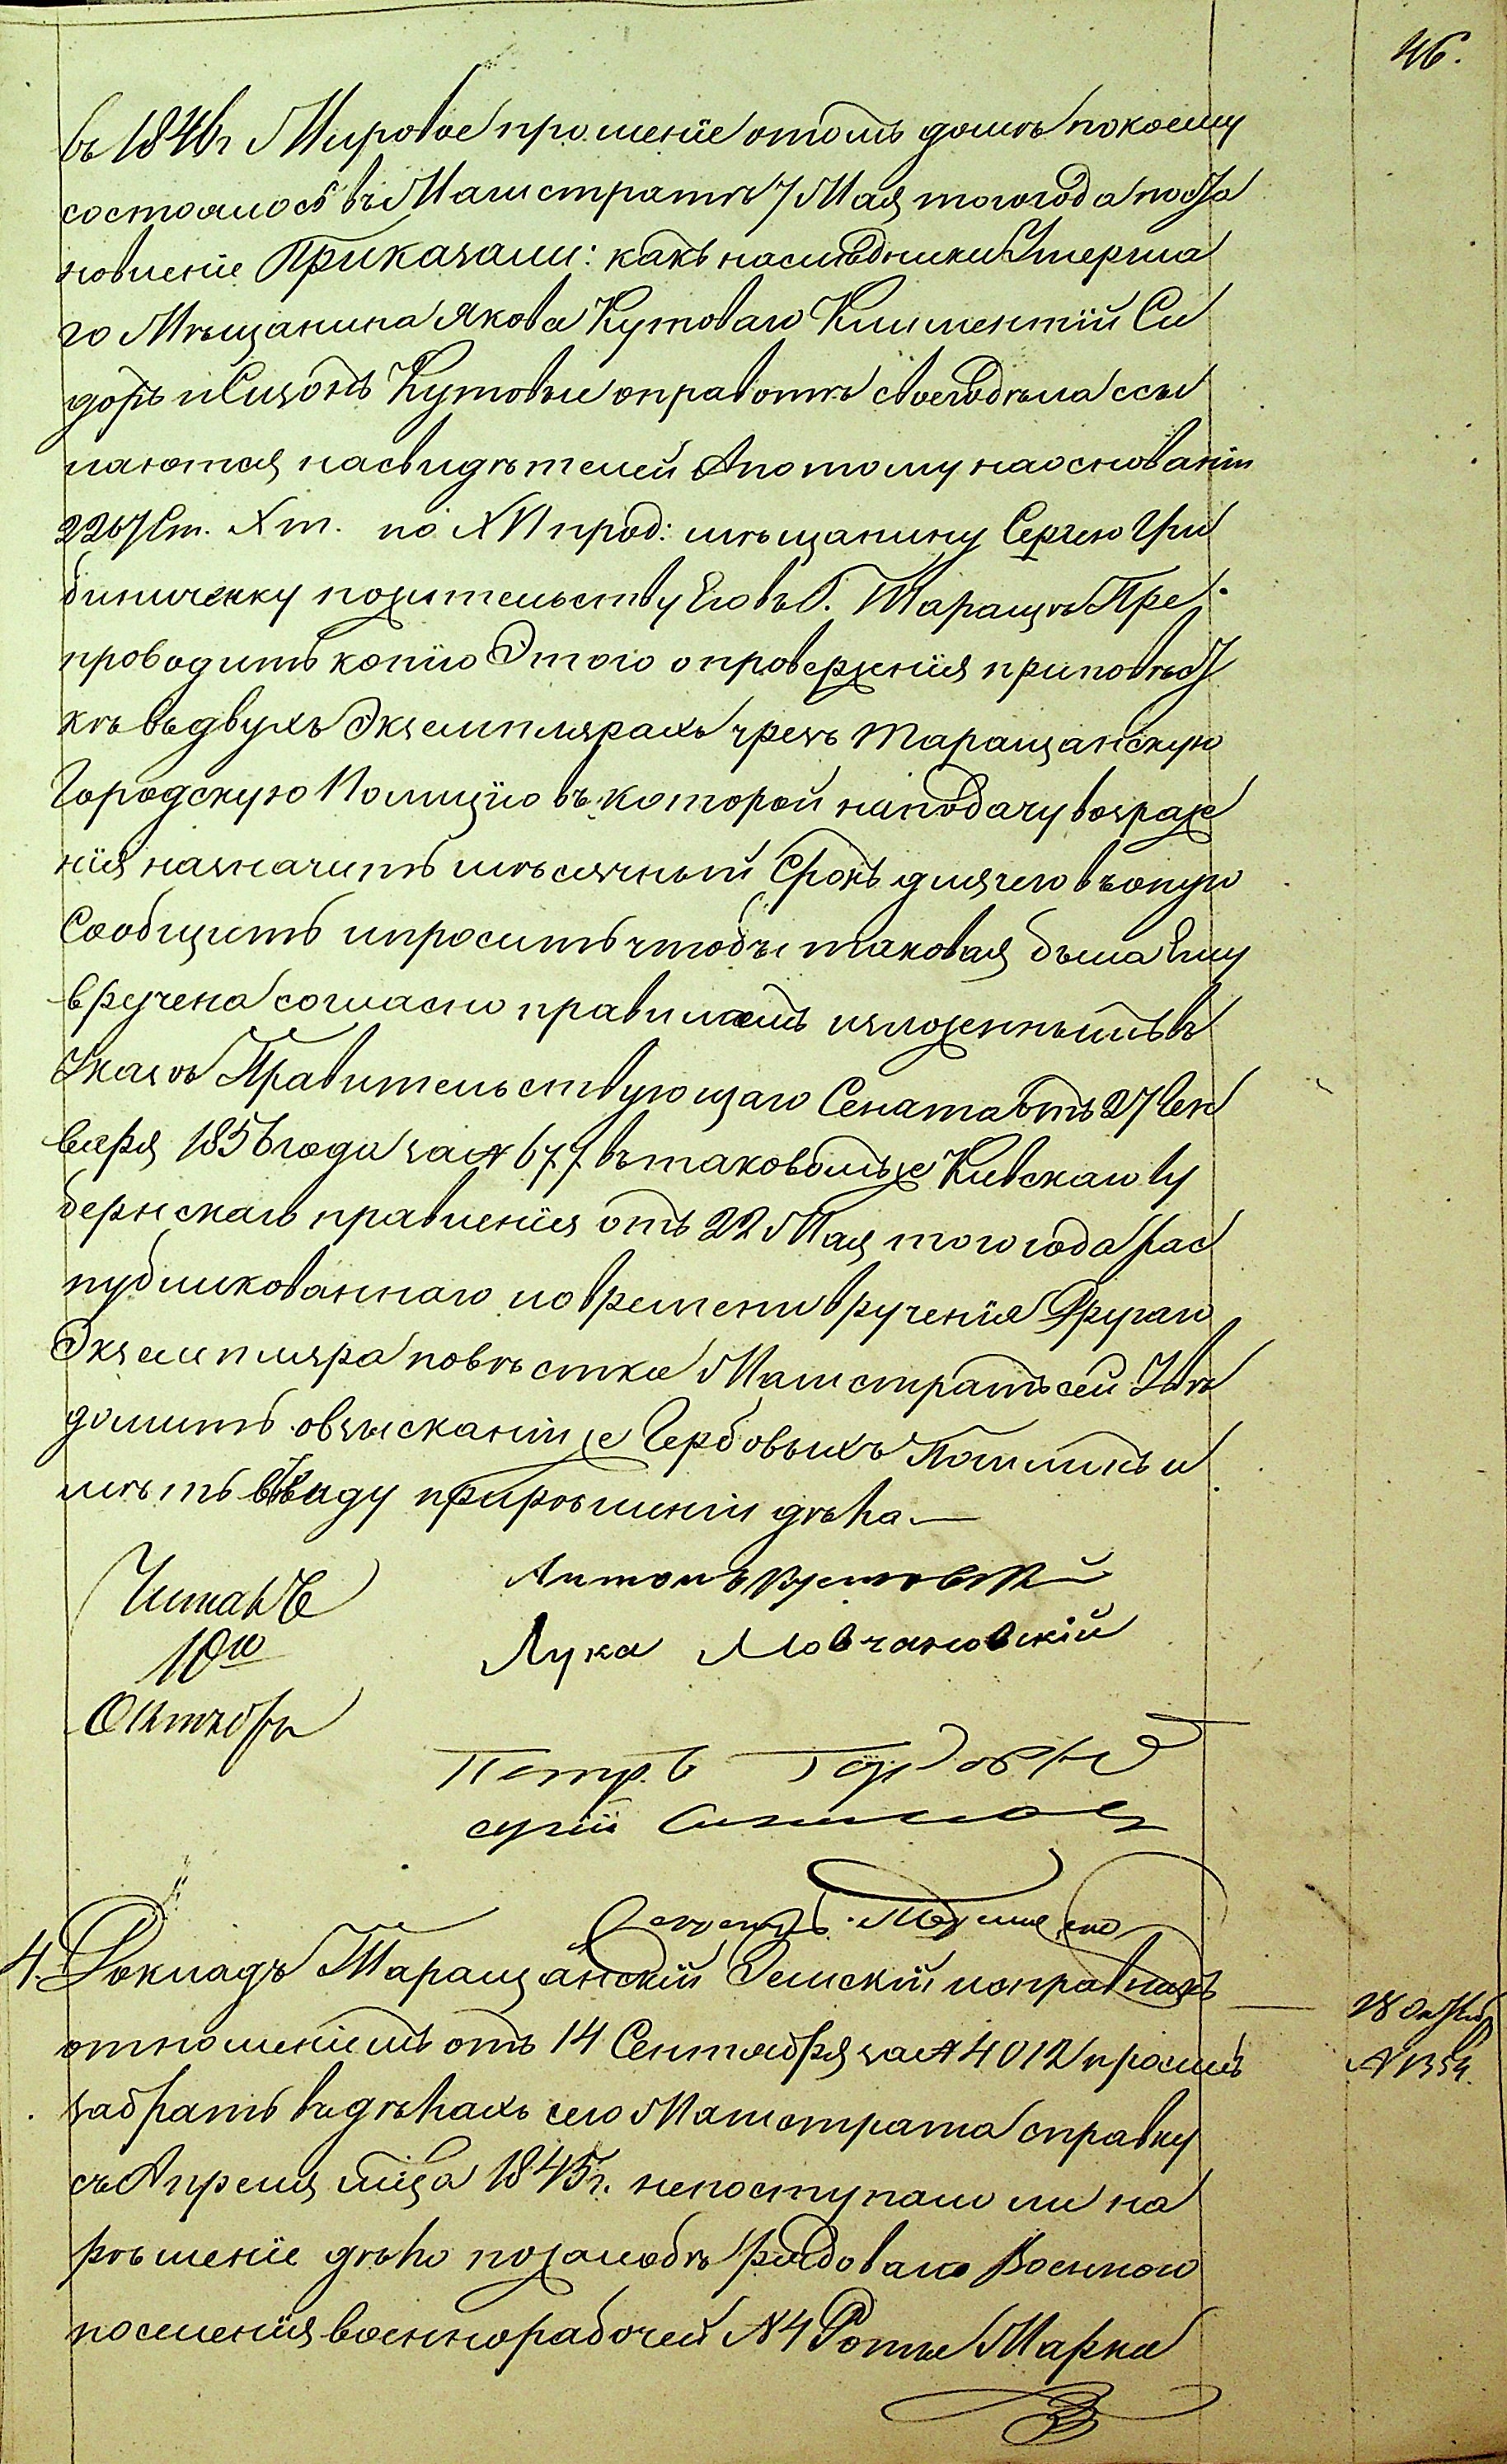 46.
въ 1846г Мировое прошеніе отомъ домѣ покоему
состоялось въ Магистратѣ 7 Мая тогогода поста
новленіе Приказали: какъ наслѣдники Умерша
го Мѣщанина Якова Кутоваго Климентій Си
доръ и Кутовые оправотѣ своегодѣла ссы
лаются насвидѣтелей Апотому наоснованіи
2267 Ст. X т. по XVI прод: мѣщанину Сергѣю
пожительству Еговъ Г. Таращѣ Пре
проводить копію Этого опроверженія приповѣст
кѣ въдвухъ Экземплярахъ чрезъ Таращанскую
Городскую Полицію въ которой наподачу возраже
нія назначить мѣсячный Срокъ длячего въоную
Сообщить ипросить чтобы таковая была Ему
вручена согласно правиламъ изложеннымъ въ
Указѣ Правительствующаго Сената отъ 27 Ген
варя 1856 года за № 677 втаковомъже Кіевскаго Гу
бернскаго правленія отъ 22 Мая тогогода рас
публикованнаго повремени врученія Другаго
Экземпляра повѣстки Магистратъ сей Увѣ
домить овзысканіиже Гербовыхъ Пошлинъ и
мѣть ввиду прирѣшеніи дѣла.—
Читалъ
10го
Октября
Антонъ
Лука Мовчановскій
Петръ
Секретарь
4. Докладъ Таращанскій Земскій исправникъ
отношеніемъ отъ 14 Сентября за № 4012 проситъ
забрать въдѣлахъ сего Магистрата справку
съ Апреля мца 1845г. непоступало ли на
рѣшеніе дѣло пожалобѣ рядоваго Военного
поселенія военнорабочей № 4 Роты Марка
28 Октяб
№ 1354.